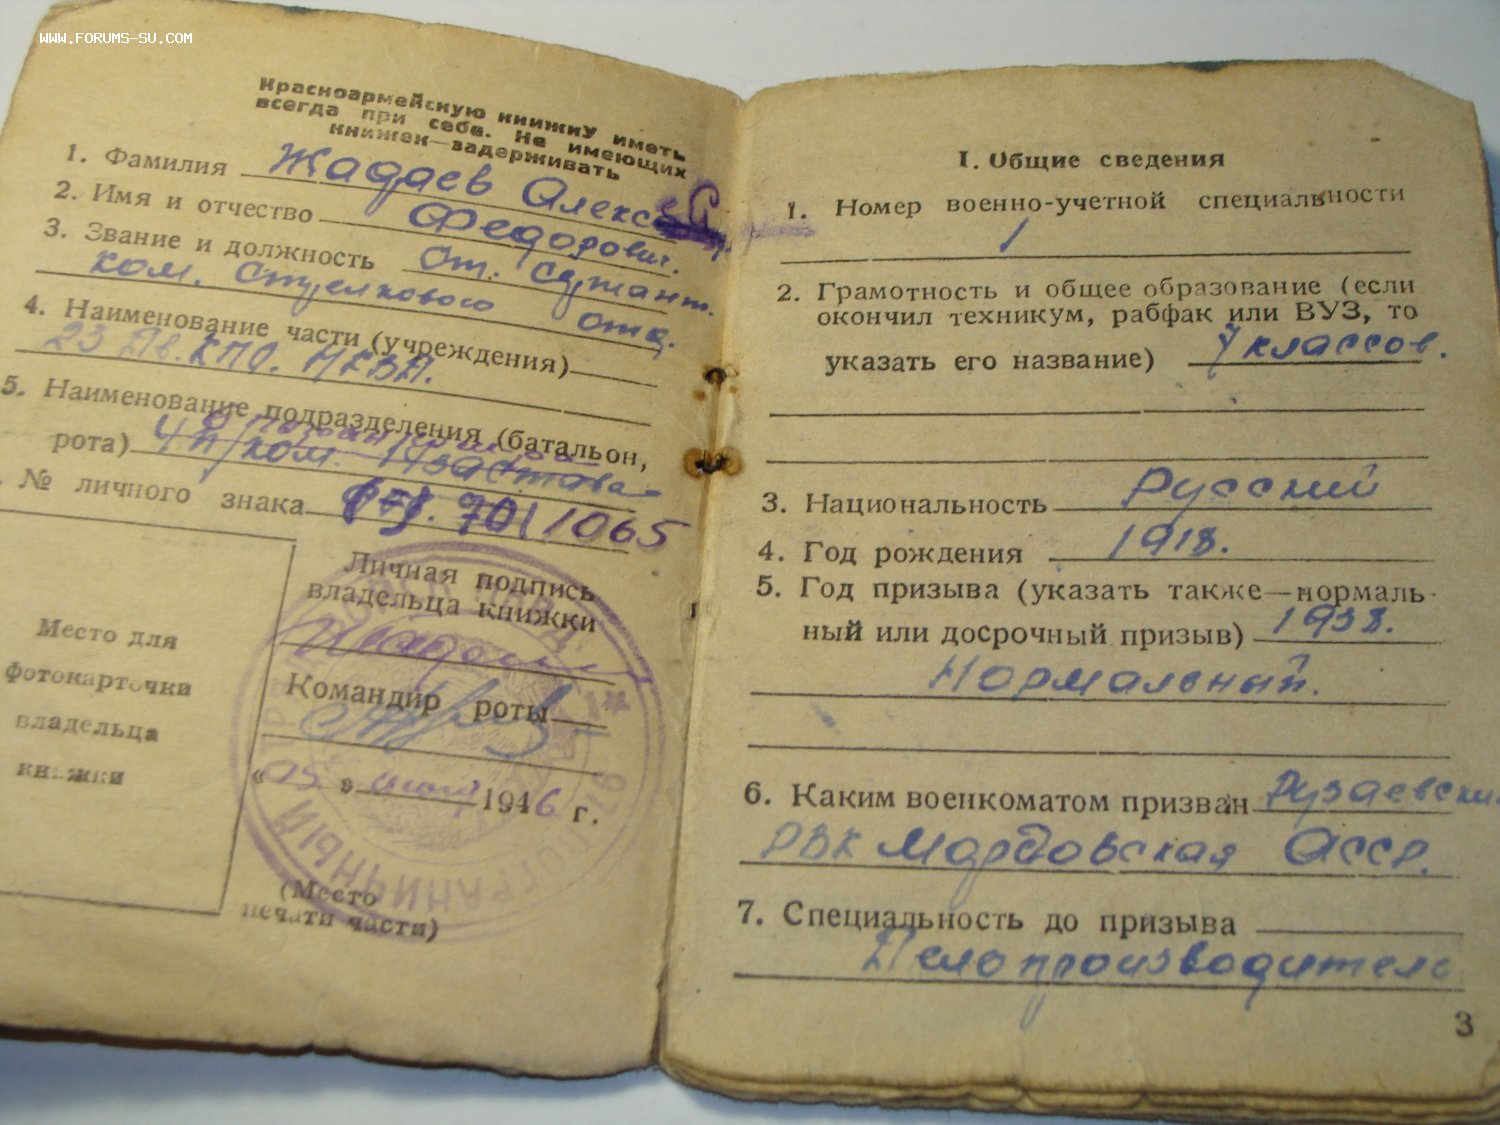 WWW.FORUMS-SU.COM
Красноармейскую книжку иметь
всегда при себе. Не имеющих
книжек—задерживать
1. Фамилия Жадаев Алекс
2. Имя и отчество Федорович.
3. Звание и должность Ст. сержант.
ком. стрелкового отд.
4. Наименование части (учреждения)
23 КПО. НКВД.
5. Наименование подразделения (батальон,
рота) 4 п/ком. застава
№ личного знака 701065
Личная подпись
владельца книжки
Командир роты
« 05 » 1946 г.
(Место
печати части)
Место для
фотокарточки
владельца
книжки
ПОГРАНИЧНЫЙ
I. Общие сведения
1. Номер военно-учетной специальности
1
2. Грамотность и общее образование (если
окончил техникум, рабфак или ВУЗ, то
указать его название) 7 классов.
3. Национальность Русский
4. Год рождения 1918.
5. Год призыва (указать также—нормаль-
ный или досрочный призыв) 1938.
Нормальный.
6. Каким военкоматом призван Рузаевский
РВК Мордовская АССР.
7. Специальность до призыва
Делопроизводитель
3